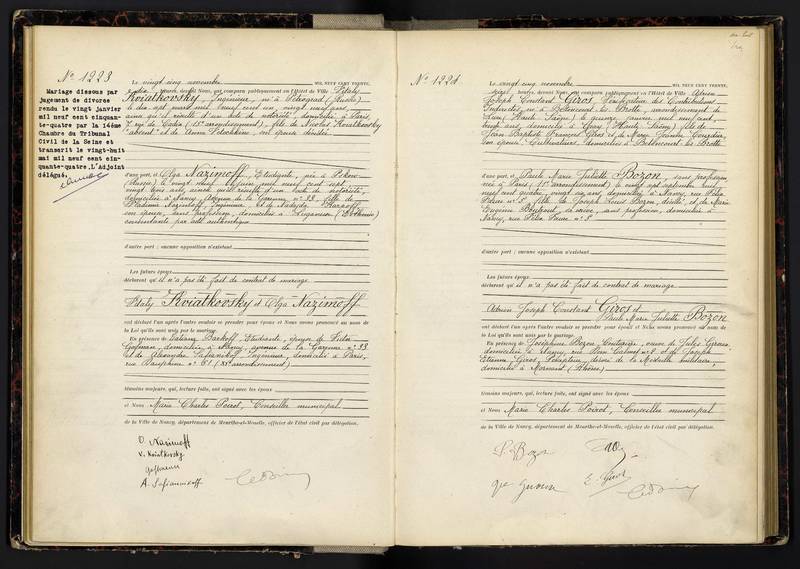 No 1223
Mariage dissous par
jugement de divorce
rendu le vingt janvier
mil neuf cent cinquan-
te-quatre par la 14ème
Chambre du Tribunal
Civil de la Seine et
transcrit le vingt-huit
mai mil neuf cent cin-
quante-quatre. L'Adjoint
délégué,
Le vingt cinq novembre MIL NEUF CENT TRENTE,
heures, devant Nous, ont comparu publiquement en l'Hôtel de Ville Vitaly
Kviatkovsky, Ingénieur, né à Pétrograd (Russie)
le dix sept mars mil neuf cent un, vingt neuf ans,
ainsi qu'il résulte d'un acte de notoriété, domicilié à Paris,
(15e arrondissement), fils de Nicolas Kviatkovsky
absent et de Anna son épouse décédée
d'une part, et Olga Nazimoff, Etudiante, née à
(Russie) le vingt neuf juin mil neuf cent sept,
vingt trois ans, acte de notoriété,
domiciliée à Nancy, Avenue de la Garenne no 33, fille de
Ingénieur, et de
son épouse, sans profession, domiciliés à
consentants par acte authentique
d'autre part ; aucune opposition n'existant
Les futurs époux
déclarent qu'il n'a pas été fait de contrat de mariage
Vitaly Kviatkovsky et Olga Nazimoff
ont déclaré l'un après l'autre vouloir se prendre pour époux et Nous avons prononcé au nom de
la Loi qu'ils sont unis par le mariage.
En présence de Barkoff, Etudiante, épouse de Victor
domiciliée à Nancy, avenue de la Garenne no 33
et de Alexandre Ingénieur, domicilié à Paris,
rue no 61 arrondissement)
témoins majeurs, qui, lecture faite, ont signé avec les époux
et Nous Marie Charles Poirot, Conseiller municipal
de la Ville de Nancy, département de Meurthe-et-Moselle, officier de l'état civil par délégation.
O. Nazimoff
V. Kviatkovsky
No 1224
Le vingt cinq novembre MIL NEUF CENT TRENTE,
heures, devant Nous, ont comparu publiquement en l'Hôtel de Ville Adrien
Joseph Constant Giros, Vérificateur des Contributions
Indirectes, né à Betoncourt les Brotte, arrondissement de
Lure (Haute Saône) le quinze janvier mil neuf cent,
trente ans, domicilié à Gray (Haute Saône) fils de
Jean Baptiste François Giros et de Marie Jeanne
son épouse, Cultivateurs, domiciliés à Betoncourt les Brotte
d'une part, et Paule Marie Juliette Bozon, sans profession
née à Paris, (11e arrondissement) le vingt sept septembre mil
neuf cent quatre, vingt six ans, domiciliée à Nancy, rue Félix
Faure no 8, fille de Joseph Louis Bozon, décédé, et de Marie
Eugénie sa veuve, sans profession, domiciliée à
Nancy, rue Félix Faure no 8
d'autre part ; aucune opposition n'existant
Les futurs époux
déclarent qu'il n'a pas été fait de contrat de mariage
Adrien Joseph Constant Giros et
Paule Marie Juliette Bozon
ont déclaré l'un après l'autre vouloir se prendre pour époux et Nous avons prononcé au nom de
la Loi qu'ils sont unis par le mariage.
En présence de Joséphine Bozon, veuve de Jules
domiciliée à Nancy, rue Dom Calmet no 8 et de Joseph
Etienne Giros, décoré de la Médaille militaire,
domicilié à Mornant (Rhône)
témoins majeurs, qui, lecture faite, ont signé avec les époux
et Nous Marie Charles Poirot, Conseiller municipal
de la Ville de Nancy, département de Meurthe-et-Moselle, officier de l'état civil par délégation.
P. Bozon
E. Giros